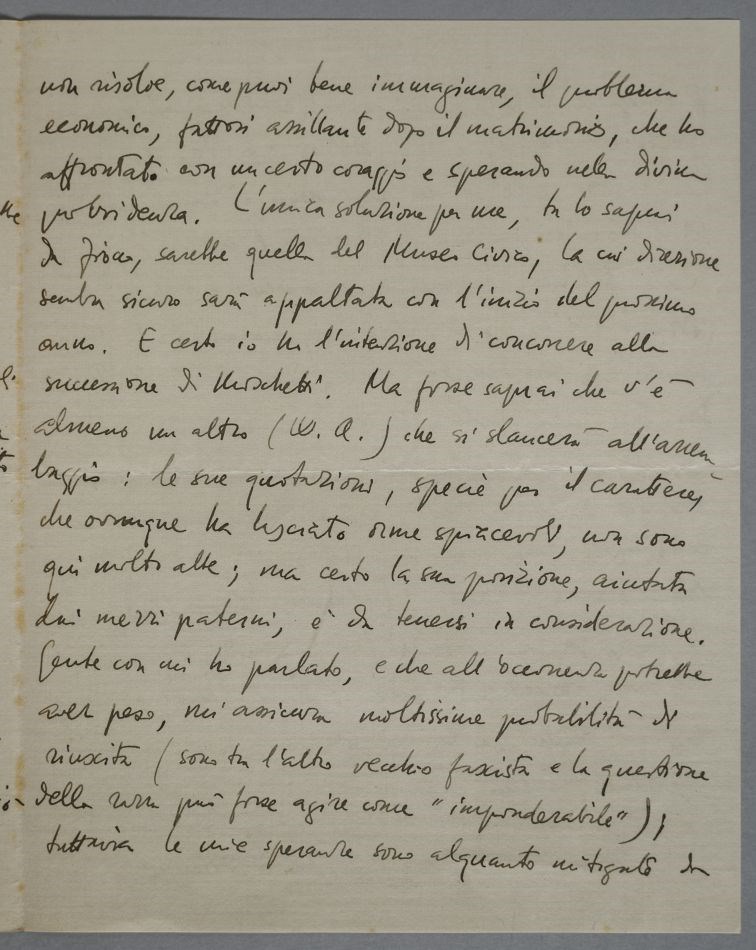 non risolve, come puoi bene immaginare, il problema
economico, fattosi assillante dopo il matrimonio, che ho
affrontato con un certo coraggio e sperando nella divina
provvidenza. L'unica soluzione per me, tu lo sapevi
da fisso, sarebbe quella del Museo Civico, la cui direzione
sembra sicuro sarà appaltata con l'inizio del prossimo
anno. E certo io ho l'intenzione di concorrere alla
successione di Moschetti. Ma forse saprai che v'è
almeno un altro (W. A.) che si slancerà all'arrem-
baggio: le sue quotazioni, specie per il carattere,
che ovunque ha lasciato orme spiacevoli, non sono
qui molto alte; ma certo la sua posizione, aiutata
dai mezzi paterni, è da tenersi in considerazione.
Gente con cui ho parlato, e che all'occorrenza potrebbe
aver peso, mi assicura moltissime probabilità di
riuscita (sono tra l'altro vecchio fascista e la questione
della razza può forse agire come "imponderabile");
tuttavia le mie speranze sono alquanto mitigate da